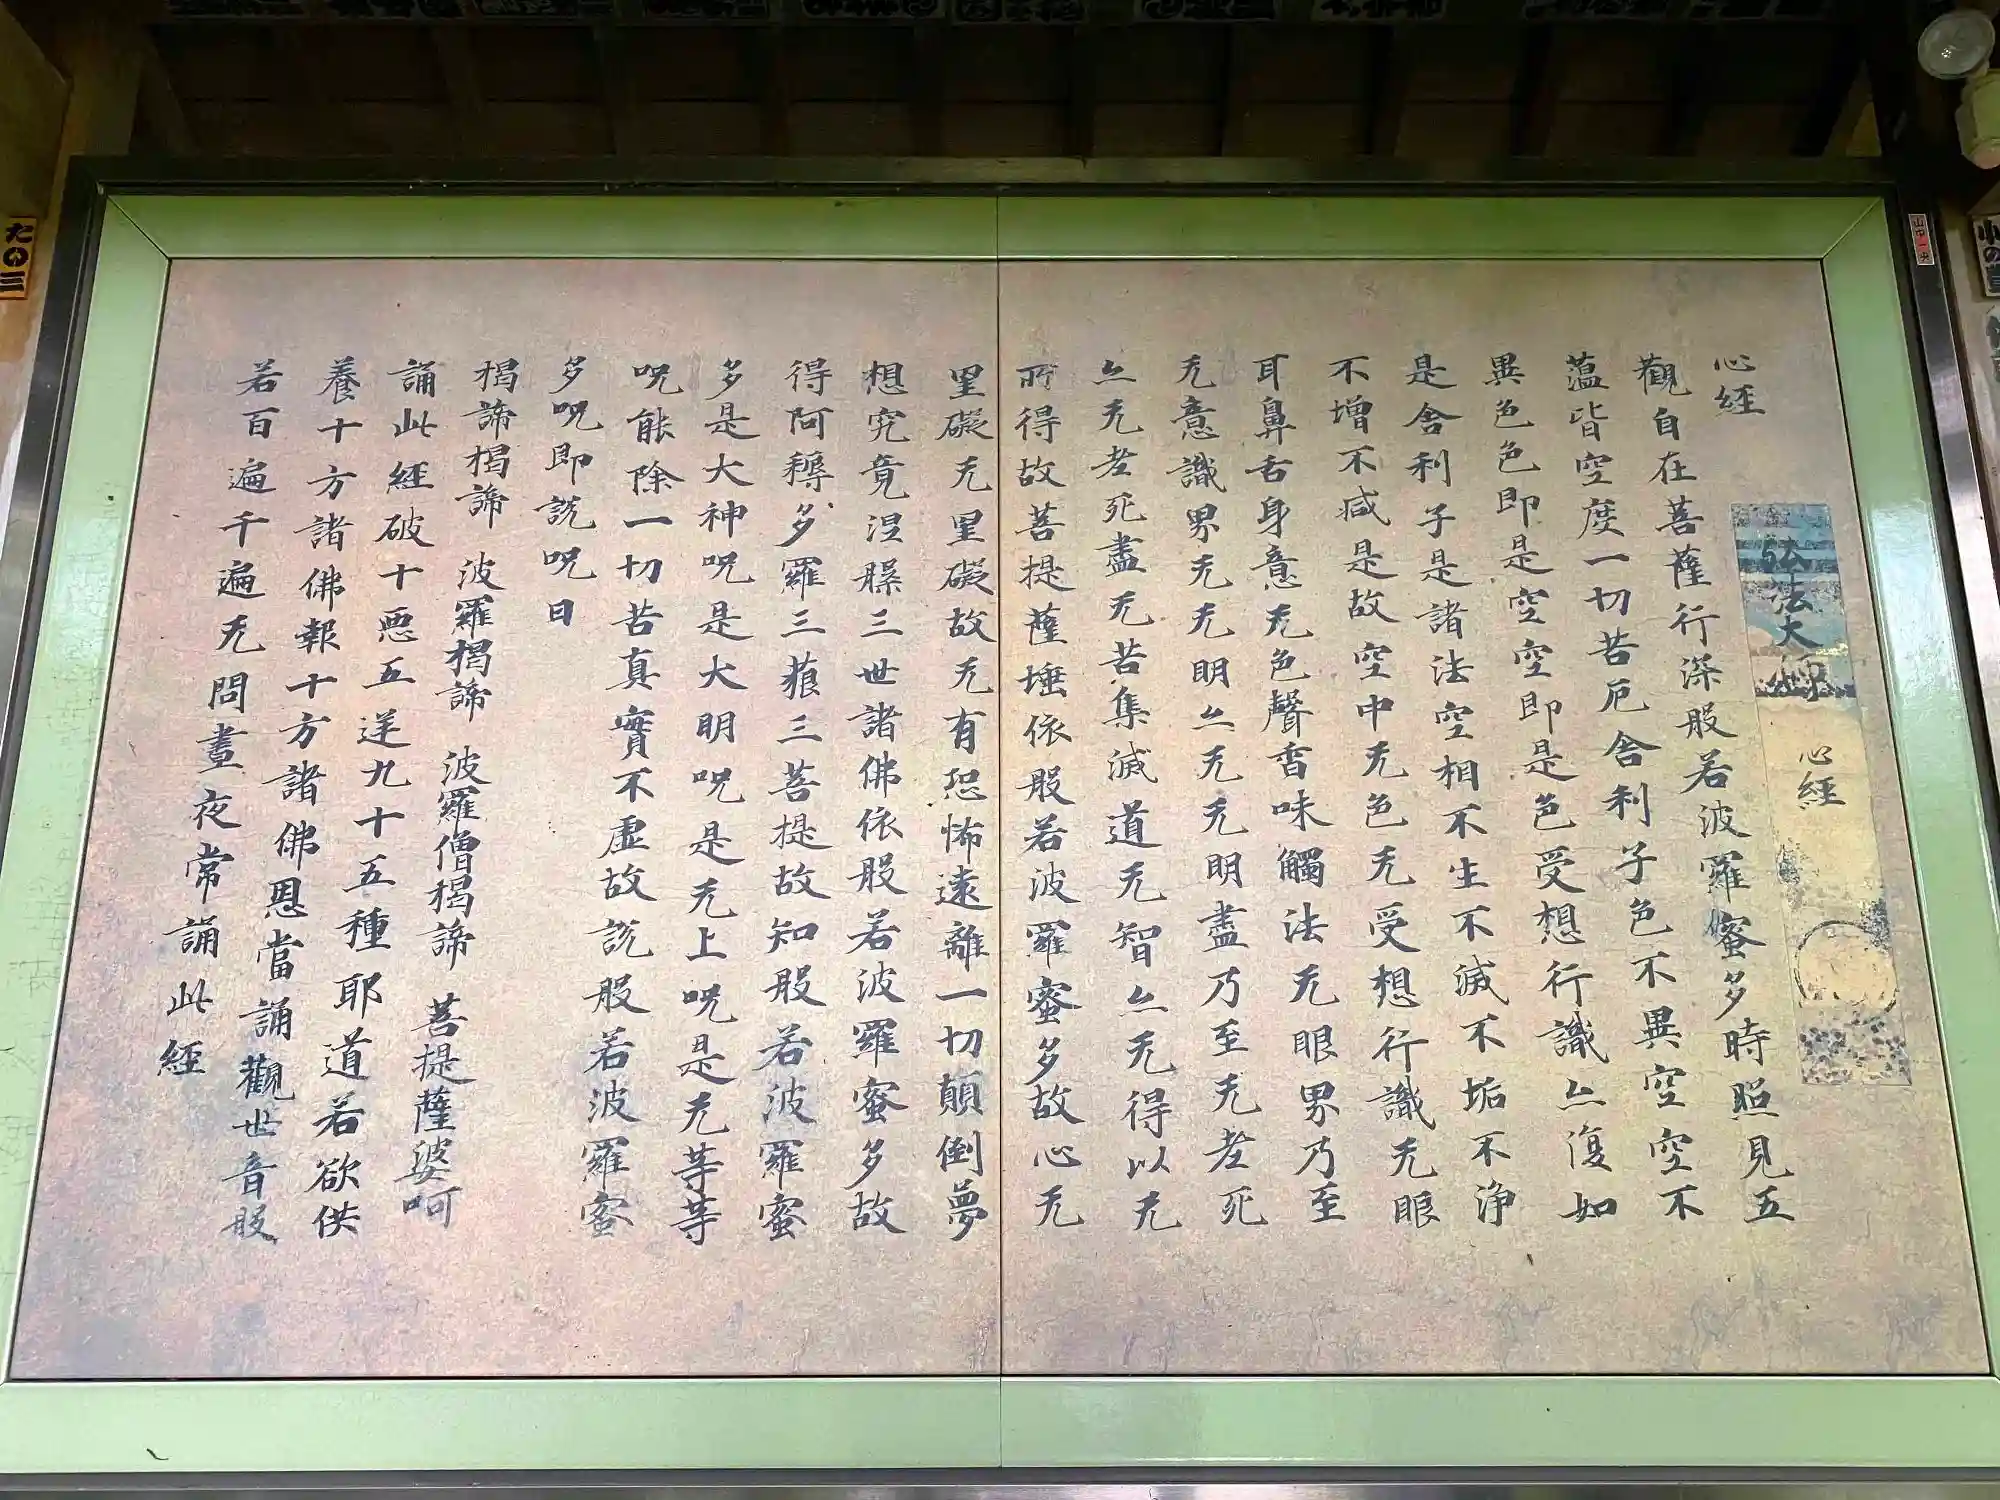 弘法大師　心経
心経
觀自在菩薩行深般若波羅蜜多時照見五
蘊皆空度一切苦厄舍利子色不異空空不
異色色即是空空即是色受想行識亦復如
是舍利子是諸法空相不生不滅不垢不淨
不增不減是故空中无色无受想行識无眼
耳鼻舌身意无色聲香味觸法无眼界乃至
无意識界无无明亦无无明盡乃至无老死
亦无老死盡无苦集滅道无智亦无得以无
所得故菩提薩埵依般若波羅蜜多故心无
罣礙无罣礙故无有恐怖遠離一切顛倒夢
想究竟涅槃三世諸佛依般若波羅蜜多故
得阿耨多羅三藐三菩提故知般若波羅蜜
多是大神呪是大明呪是无上呪是无等等
呪能除一切苦真實不虛故說般若波羅蜜
多呪即說呪曰
揭諦揭諦　波羅揭諦　波羅僧揭諦　菩提薩婆呵
誦此經破十惡五逆九十五種耶道若欲供
養十方諸佛報十方諸佛恩當誦觀世音般
若百遍千遍无問晝夜常誦此經
たの三
山中一央